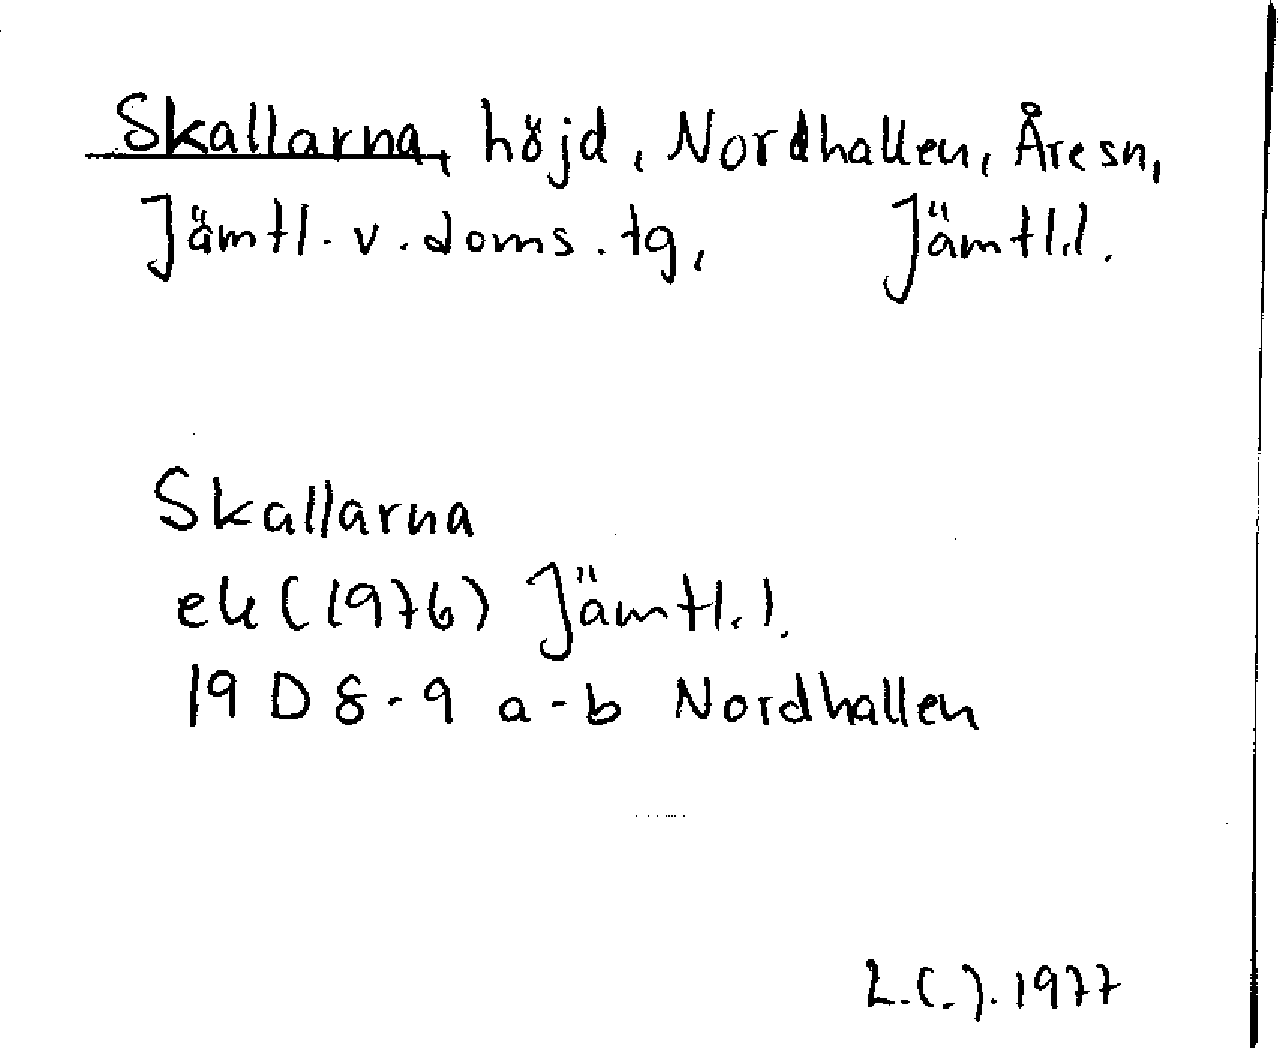 Skallarna, höjd, Nordhallen, Åresn,
Jämtl. v. doms. tg, Jämtl.l.
Skallarna
ek (1976) Jämtl.l.
19 D 8-9 a-b Nordhallen
L.C.J. 1977